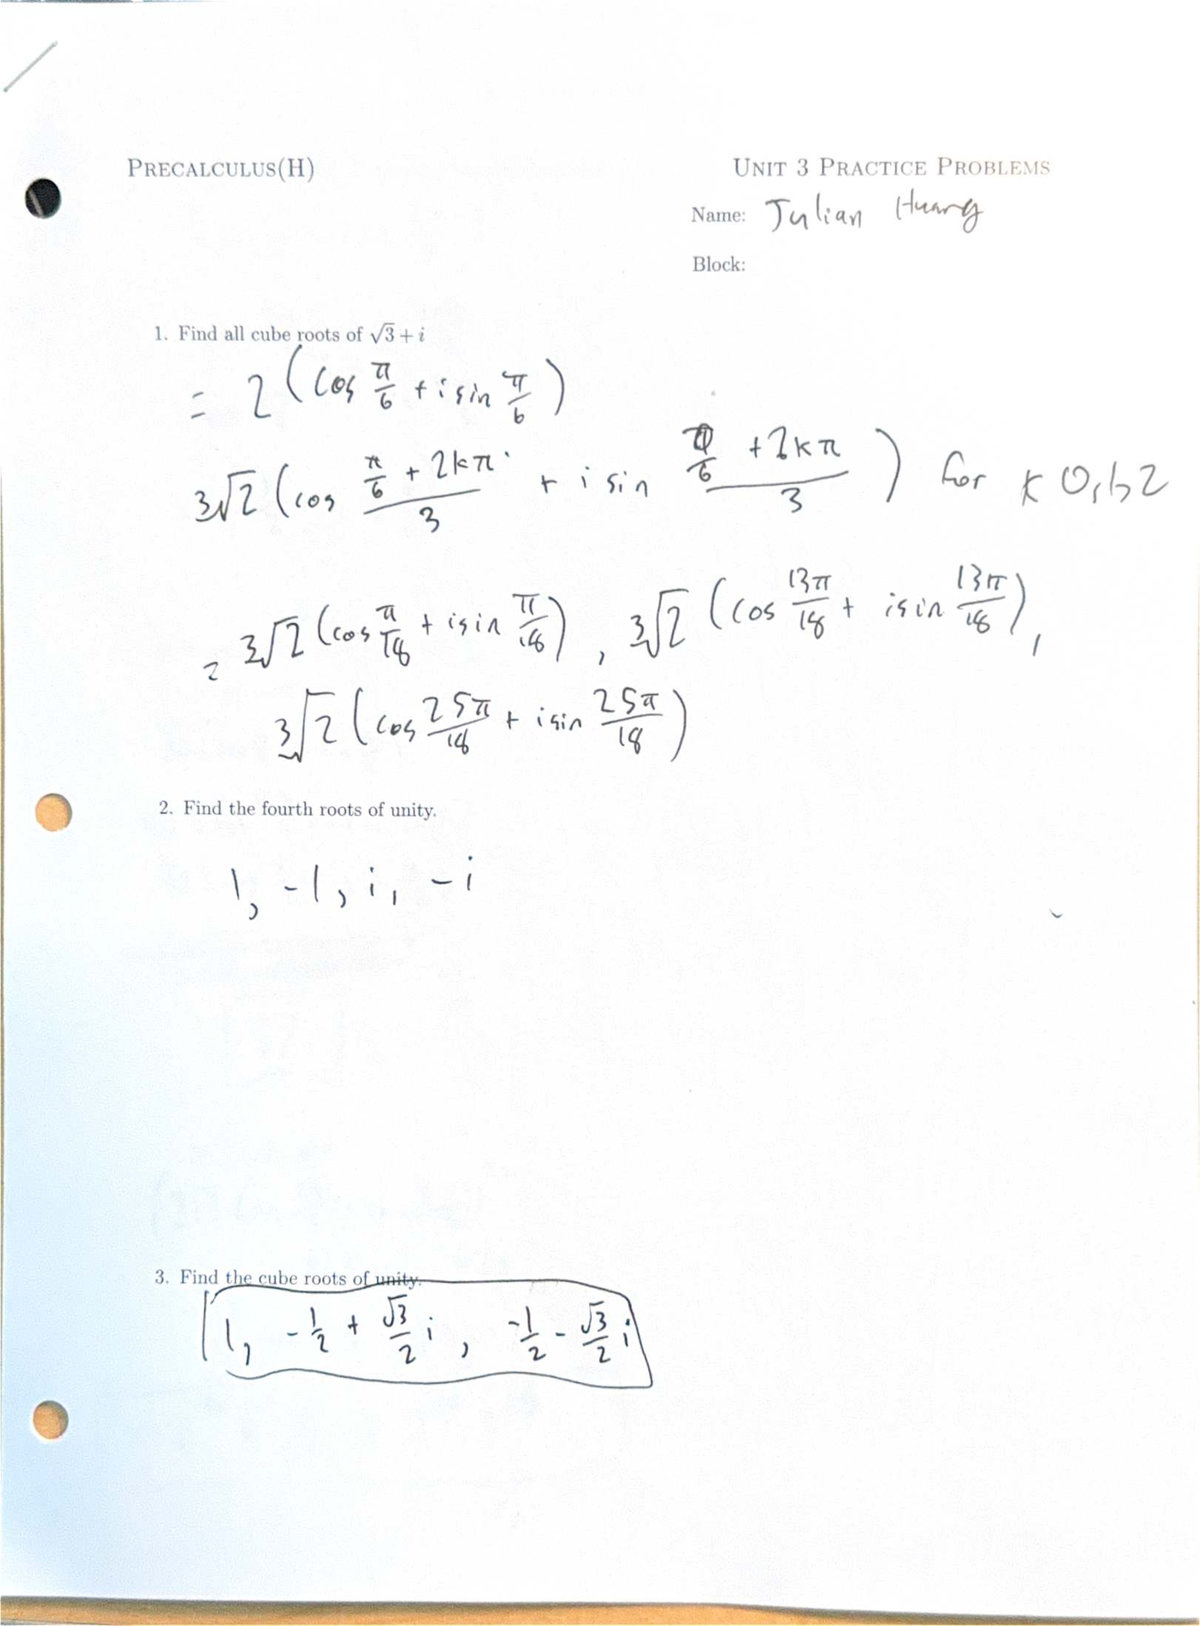 PRECALCULUS(H)
UNIT 3 PRACTICE PROBLEMS
Name: Julian Huang
Block:
1. Find all cube roots of √3 + i
= 2 (cos π/6 + i sin π/6)
3√2 (cos (π/6 + 2kπ)/3 + i sin (π/6 + 2kπ)/3) for k 0,1,2
= 3√2 (cos π/18 + i sin π/18), 3√2 (cos 13π/18 + i sin 13π/18),
3√2 (cos 25π/18 + i sin 25π/18)
2. Find the fourth roots of unity.
1, -1, i, -i
3. Find the cube roots of unity.
1, -1/2 + √3/2 i, -1/2 - √3/2 i